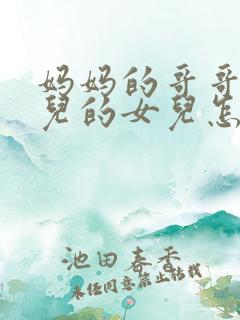 妈妈的哥哥
兒的女兒怎
池田春香
未经同意禁止转载